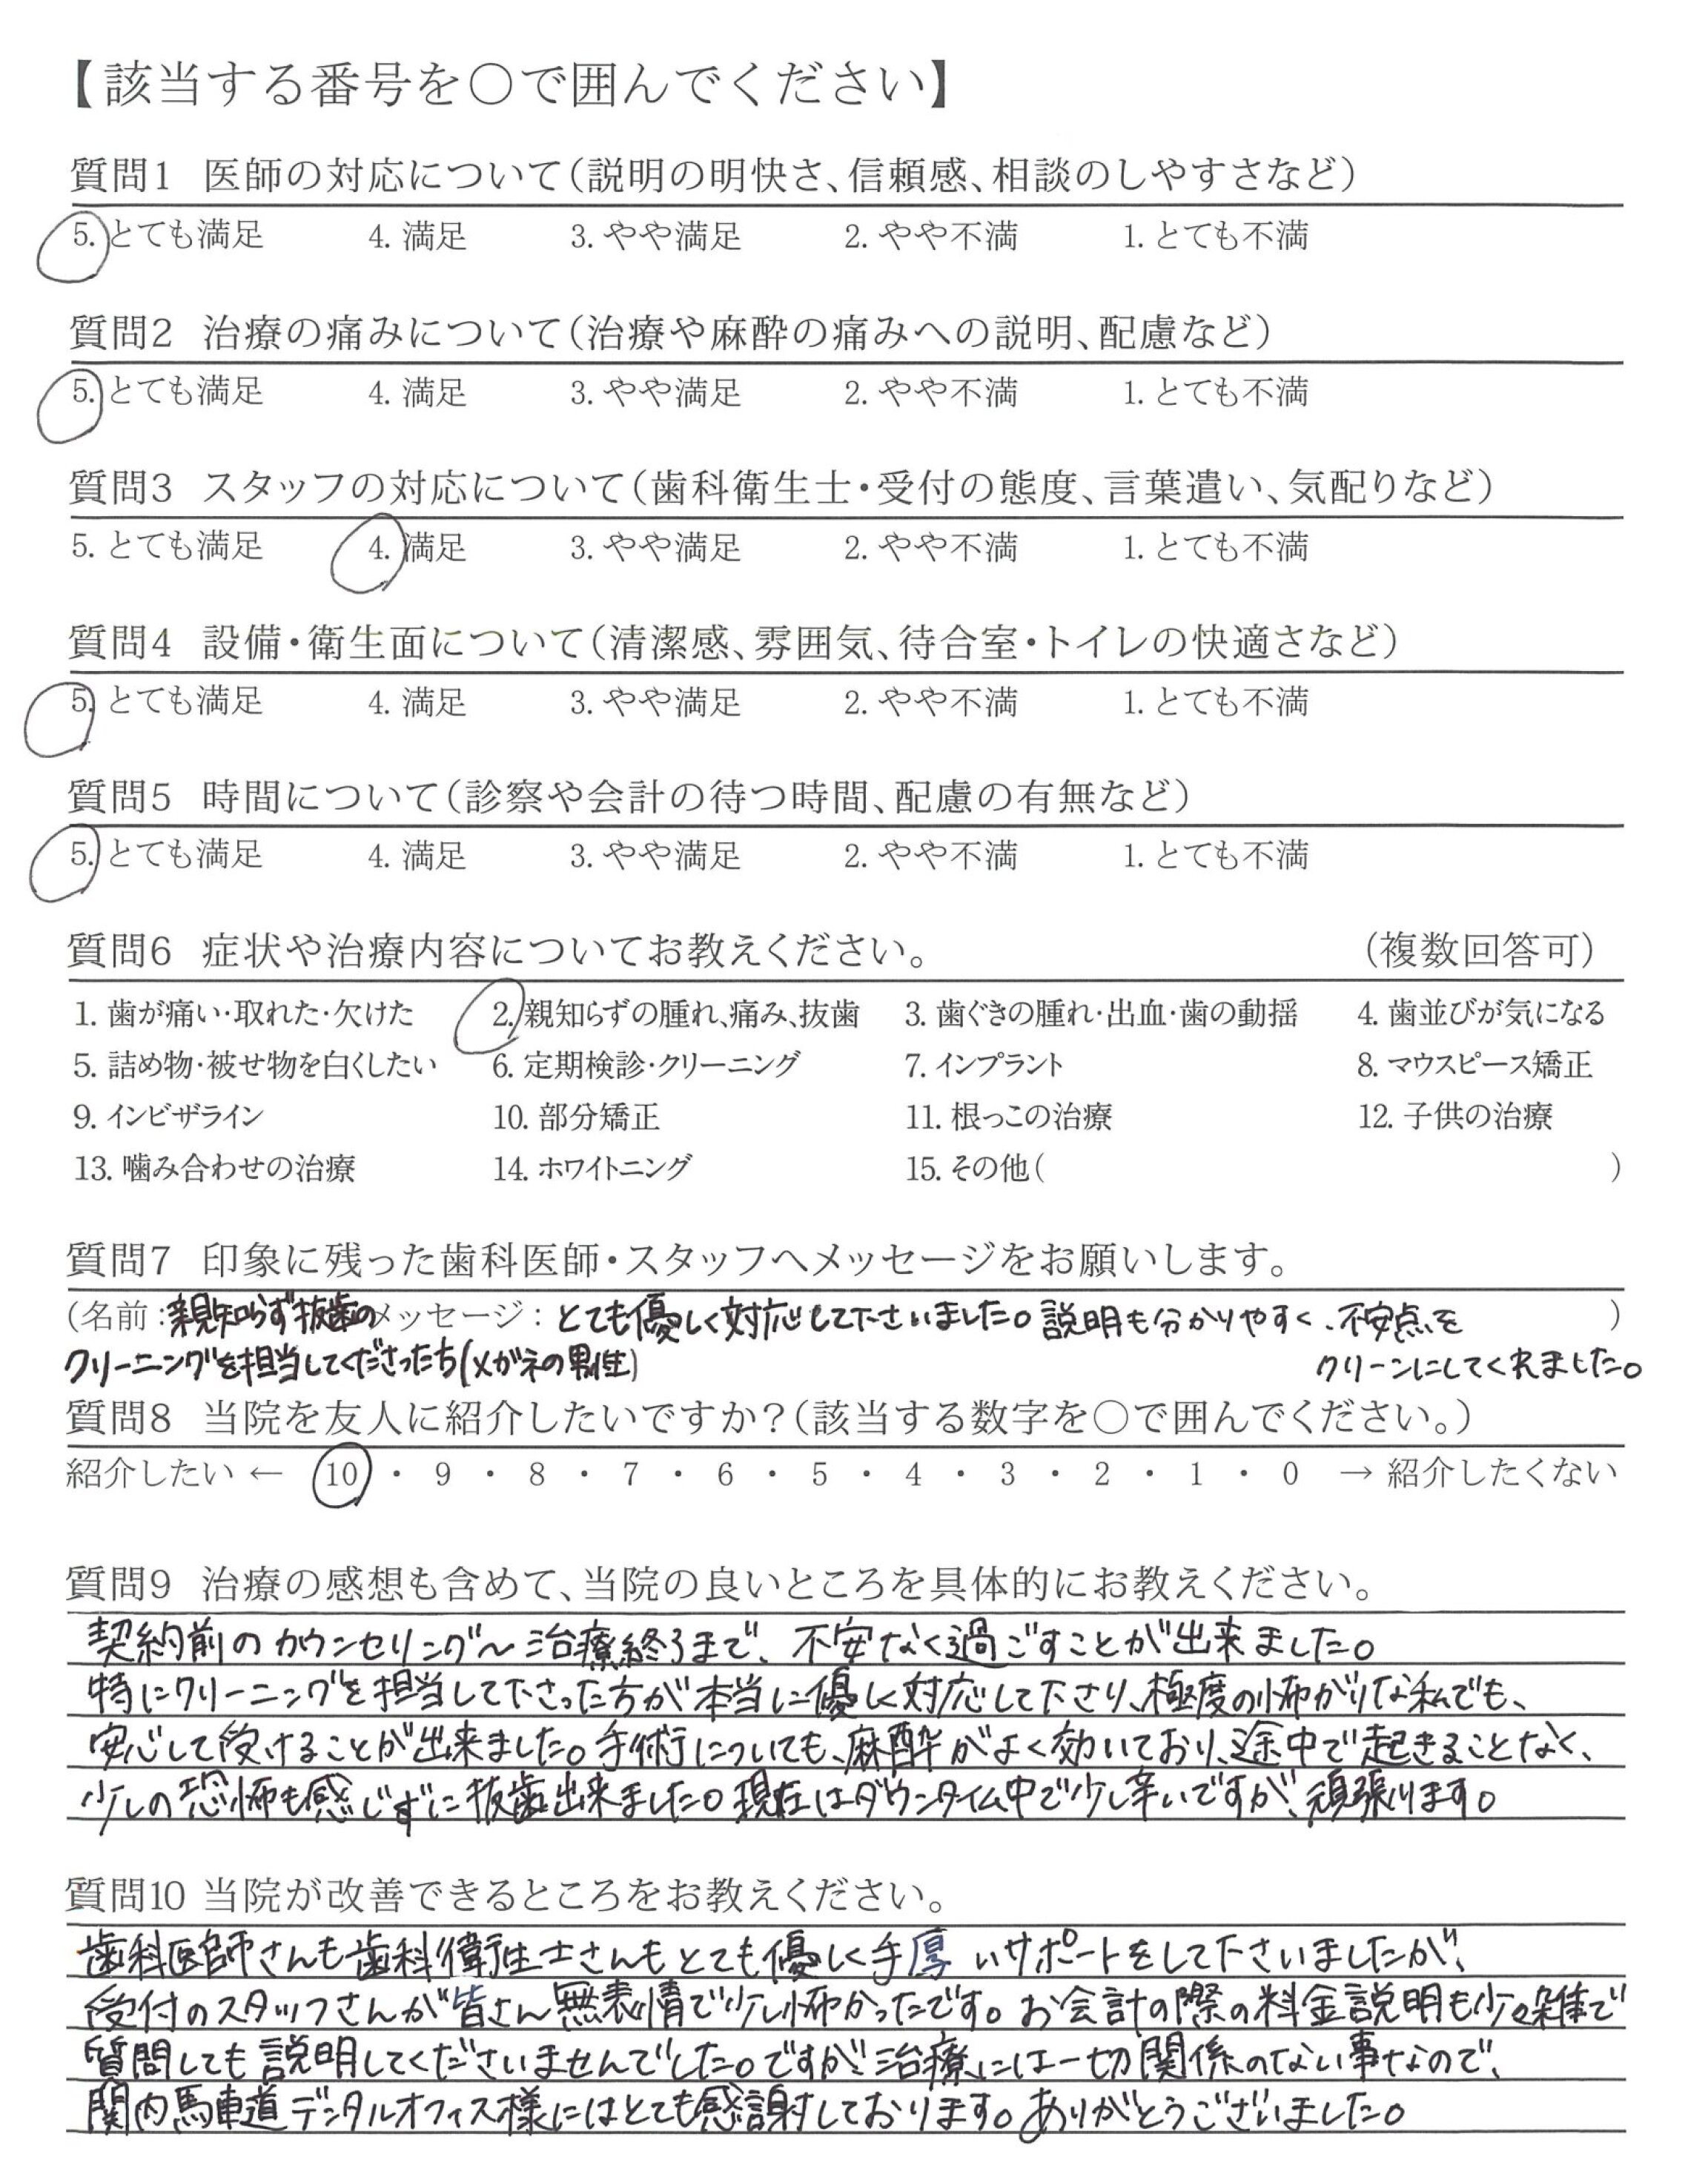 【該当する番号を○で囲んでください】
質問1 医師の対応について（説明の明快さ、信頼感、相談のしやすさなど）
5. とても満足 4. 満足 3. やや満足 2. やや不満 1. とても不満
質問2 治療の痛みについて（治療や麻酔の痛みへの説明、配慮など）
5. とても満足 4. 満足 3. やや満足 2. やや不満 1. とても不満
質問3 スタッフの対応について（歯科衛生士・受付の態度、言葉遣い、気配りなど）
5. とても満足 4. 満足 3. やや満足 2. やや不満 1. とても不満
質問4 設備・衛生面について（清潔感、雰囲気、待合室・トイレの快適さなど）
5. とても満足 4. 満足 3. やや満足 2. やや不満 1. とても不満
質問5 時間について（診察や会計の待つ時間、配慮の有無など）
5. とても満足 4. 満足 3. やや満足 2. やや不満 1. とても不満
質問6 症状や治療内容についてお教えください。 （複数回答可）
1. 歯が痛い・取れた・欠けた 2. 親知らずの腫れ、痛み、抜歯 3. 歯ぐきの腫れ・出血・歯の動揺 4. 歯並びが気になる
5. 詰め物・被せ物を白くしたい 6. 定期検診・クリーニング 7. インプラント 8. マウスピース矯正
9. インビザライン 10. 部分矯正 11. 根っこの治療 12. 子供の治療
13. 噛み合わせの治療 14. ホワイトニング 15. その他（ ）
質問7 印象に残った歯科医師・スタッフへメッセージをお願いします。
（名前：親知らず抜歯の メッセージ：とても優しく対応して下さいました。説明も分かりやすく、不安点を ）
クリーニングを担当してくださったち(メガネの男性) クリーンにしてくれました。
質問8 当院を友人に紹介したいですか？（該当する数字を○で囲んでください。）
紹介したい ← 10 ・ 9 ・ 8 ・ 7 ・ 6 ・ 5 ・ 4 ・ 3 ・ 2 ・ 1 ・ 0 → 紹介したくない
質問9 治療の感想も含めて、当院の良いところを具体的にお教えください。
契約前のカウンセリング〜治療終了まで、不安なく過ごすことが出来ました。
特にクリーニングを担当して下さった方が本当に優しく対応して下さり、極度の怖がりな私でも、
安心して受けることが出来ました。手術についても、麻酔がよく効いており、途中で起きることなく、
少しの恐怖も感じずに抜歯出来ました。現在はダウンタイム中で少し辛いですが、頑張ります。
質問10 当院が改善できるところをお教えください。
歯科医師さんも歯科衛生士さんもとても優しく手厚いサポートをして下さいましたが、
受付のスタッフさんが皆さん無表情で少し怖かったです。お会計の際の料金説明も少々雑で
質問しても説明してくださいませんでした。ですが、治療には一切関係のない事なので、
関内馬車道デンタルオフィス様にはとても感謝しております。ありがとうございました。